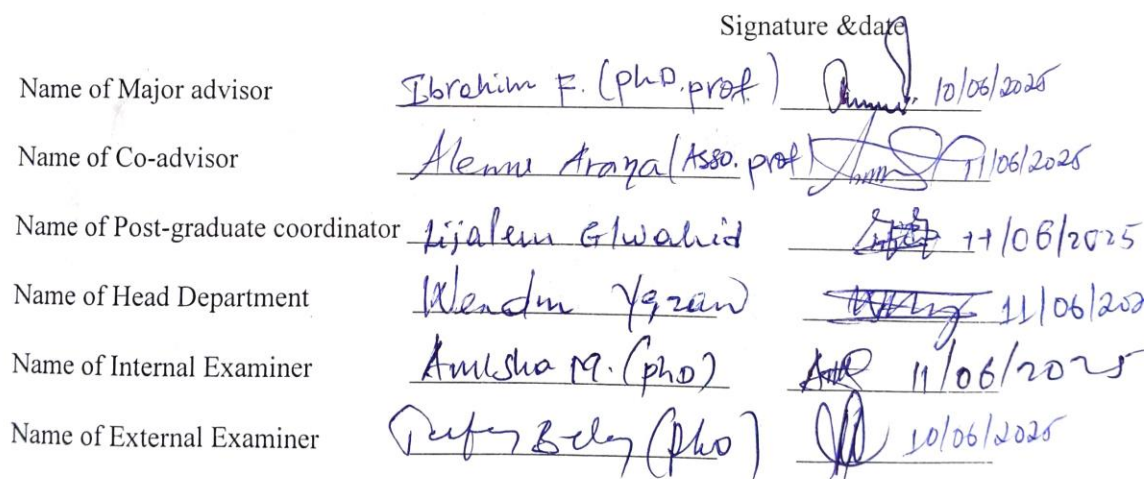 Signature &date
Name of Major advisor Ibrahim F. (phD. prof.) 10/06/2025
Name of Co-advisor Alemu Araya (Asso. prof) 11/06/2025
Name of Post-graduate coordinator Lijalem G/wahid 11/06/2025
Name of Head Department Wendm 11/06/202
Name of Internal Examiner Amisha M. (phD) 11/06/2025
Name of External Examiner (phD) 10/06/2025